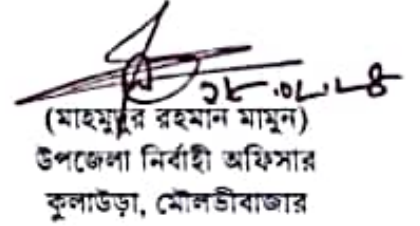 (মাহমুদুর রহমান মামুন)
উপজেলা নির্বাহী অফিসার
কুলাউড়া, মৌলভীবাজার